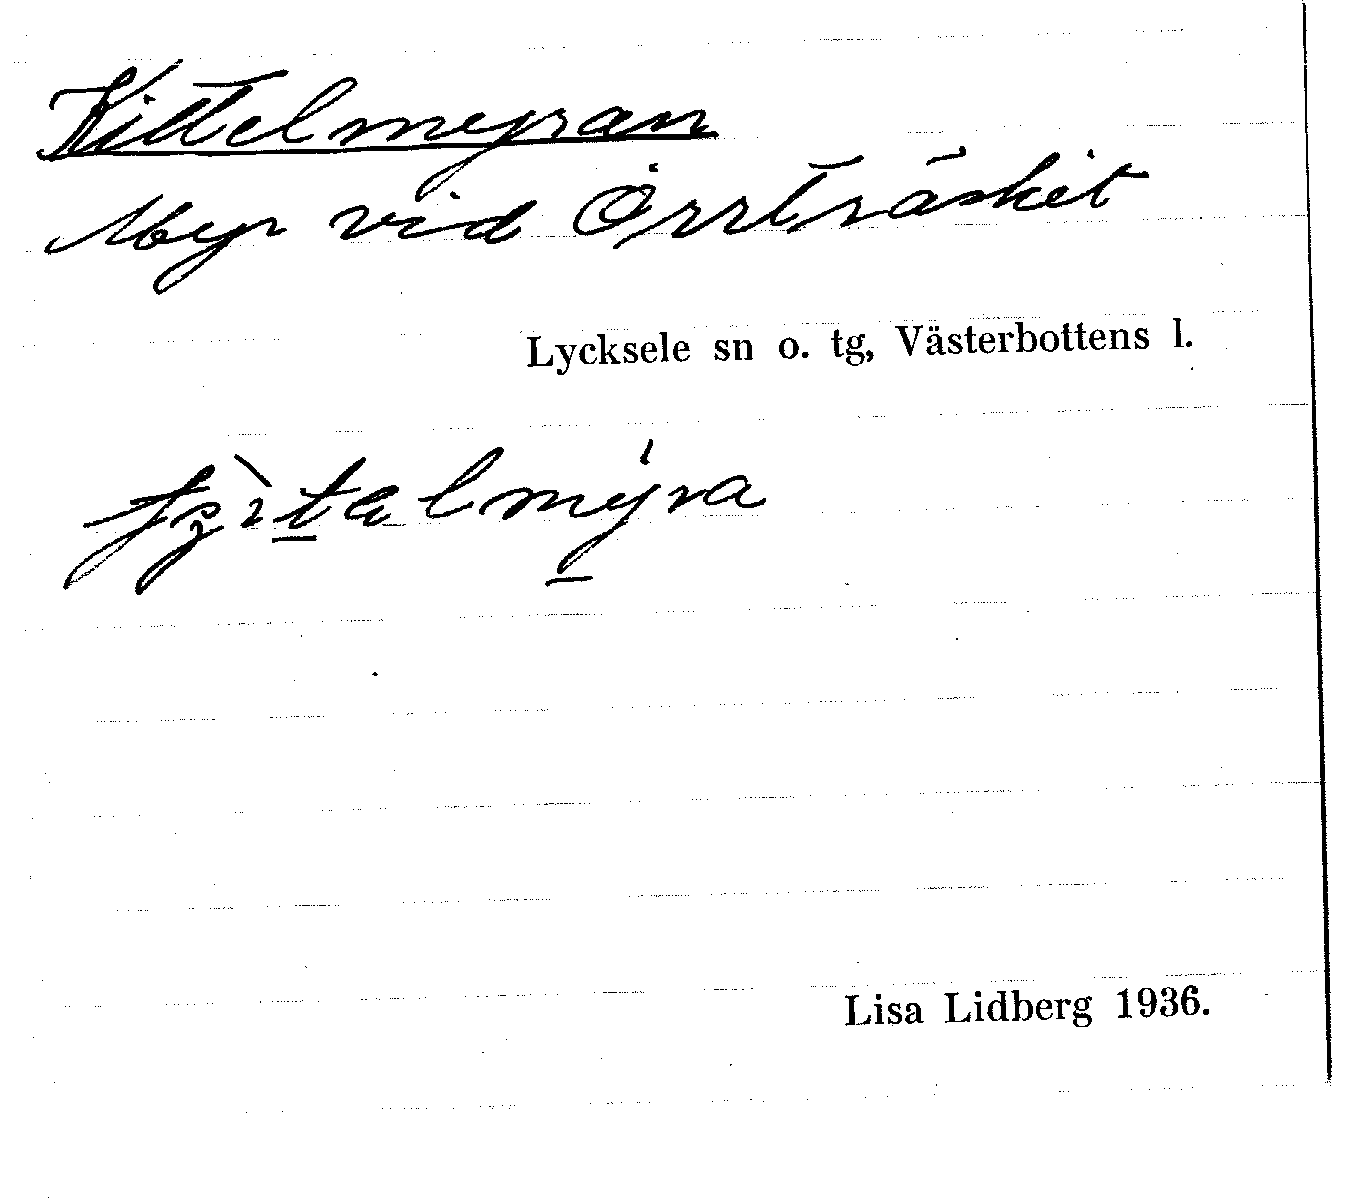 Kittelmyran
Myr vid Orrträsket
Lycksele sn o. tg, Västerbottens l.
Lisa Lidberg 1936.